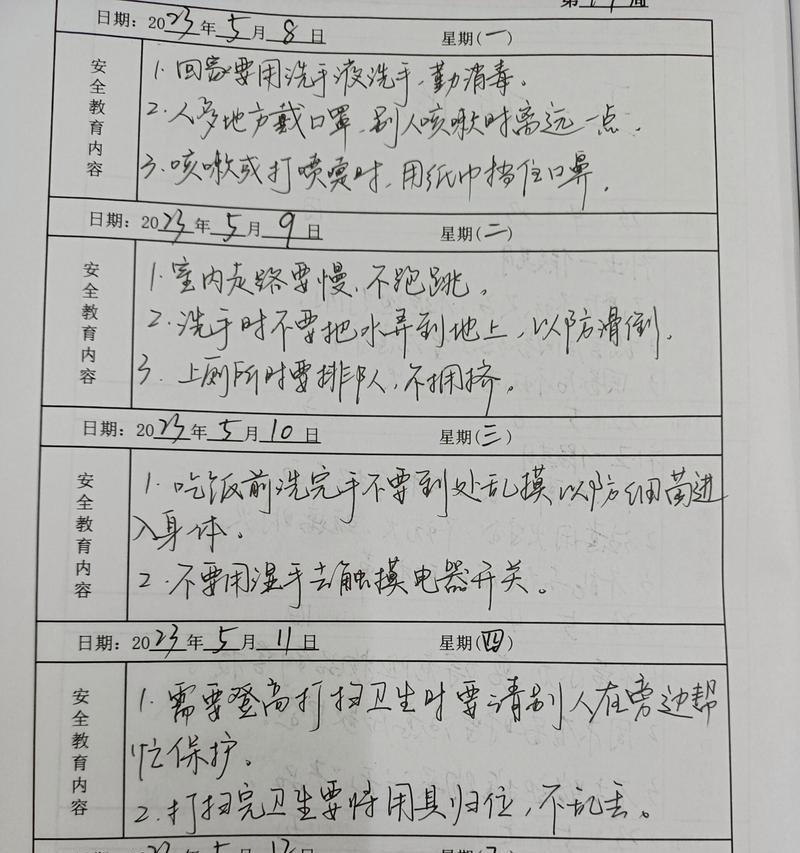 日期：2023年5月8日 星期(一)
安全教育内容
1. 回家要用洗手液洗手，勤消毒。
2. 人多地方戴口罩，别人咳嗽时离远一点．
3. 咳嗽或打喷嚏时，用纸巾挡住口鼻．
日期：2023年5月9日 星期(二)
安全教育内容
1. 室内走路要慢、不跑跳。
2. 洗手时不要把水弄到地上，以防滑倒．
3. 上厕所时要排队，不拥挤。
日期：2023年5月10日 星期(三)
安全教育内容
1. 吃饭前洗完手不要到处乱摸以防细菌进
入身体。
2. 不要用湿手去触摸电器开关。
日期：2023年5月11日 星期(四)
安全教育内容
1. 需要登高打扫卫生时要请别人在旁边帮
忙保护。
2. 打扫完卫生要将用具归位，不乱丢。